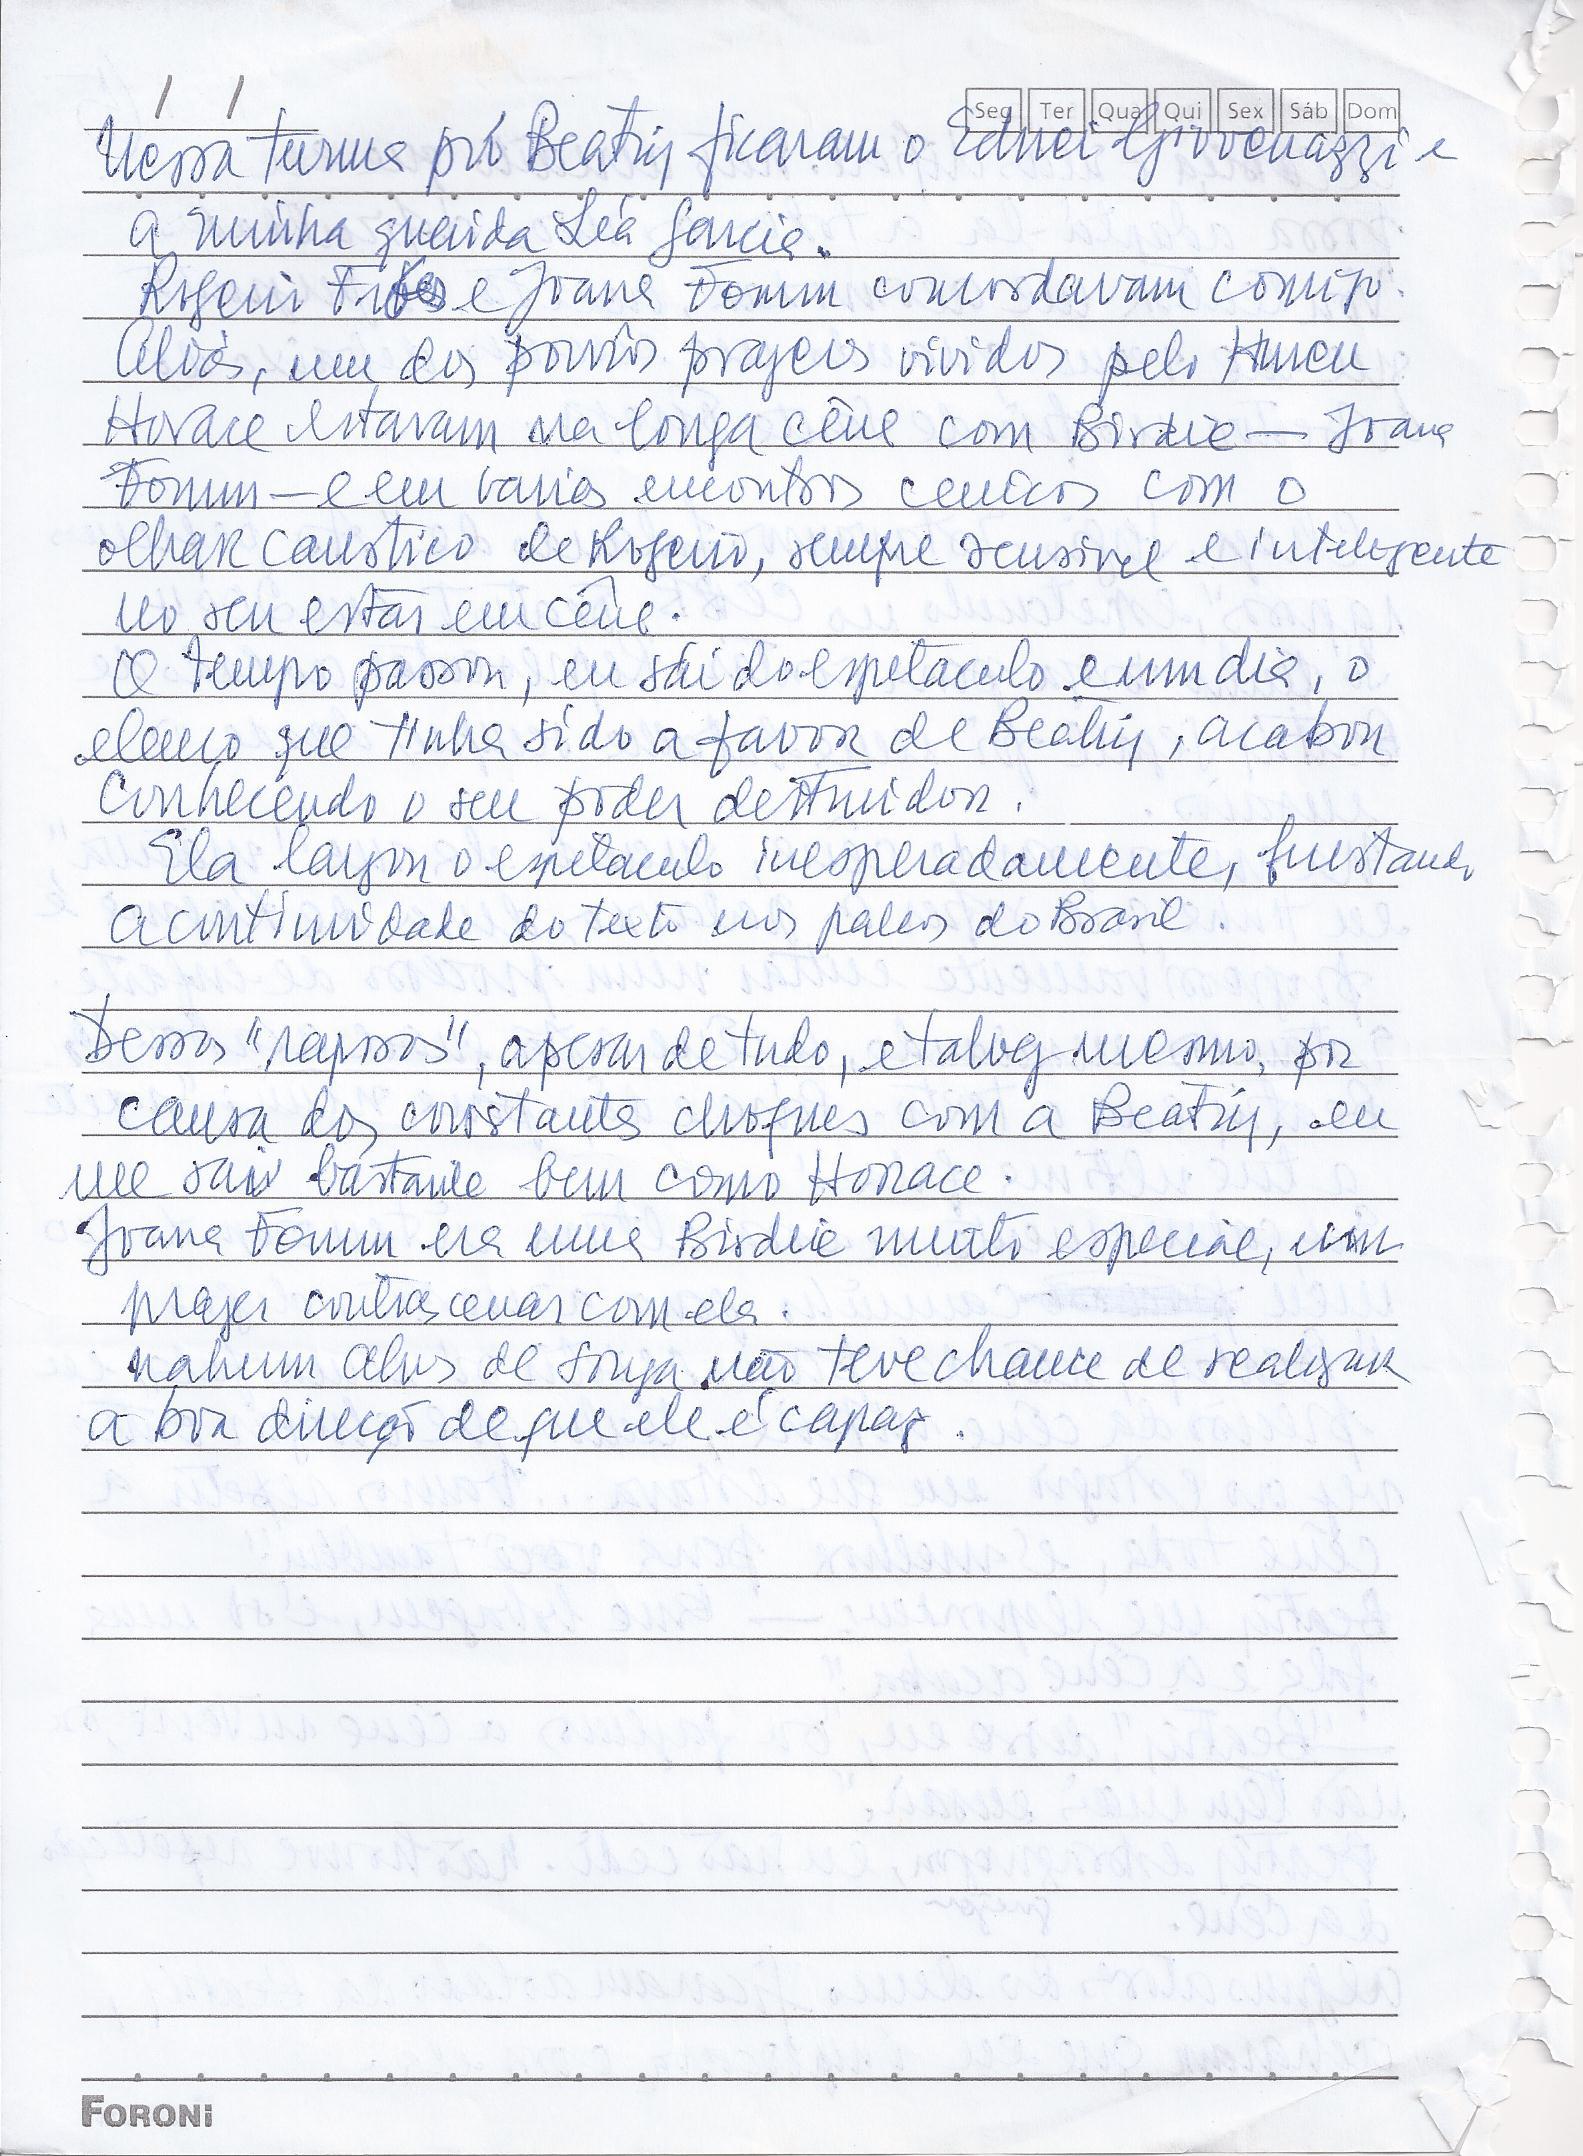 / /
Seg Ter Qua Qui Sex Sáb Dom
Nessa turma pró Beatriz ficaram o Ednei Giovenazzi e
a minha querida Léa Garcia.
Rogerio Fróes e Joana Fomm concordavam comigo.
Aliás, um dos poucos prazeres vividos pelo meu
Horace estavam na longa cêna com Birdie — Joana
Fomm — e em varios encontros cenicos com o
olhar caustico de Rogerio, sempre sensivel e inteligente
no seu estar em cêna.
O tempo passou, eu sái do espetaculo e um dia, o
elenco que tinha sido a favor de Beatriz, acabou
conhecendo o seu poder destruidor.
Ela largou o espetaculo inesperadamente, frustando
a continuidade do texto nos palcos do Brasil.
Dessas "rapsos", apesar de tudo, e talvez mesmo, por
causa dos constantes choques com a Beatriz, eu
me sai bastante bem como Horace.
Joana Fomm era uma Birdie muito especial, um
prazer contrascenar com ela.
Nahum Alves de Souza não teve chance de realizar
a boa direção de que ele é capaz.
FORONI